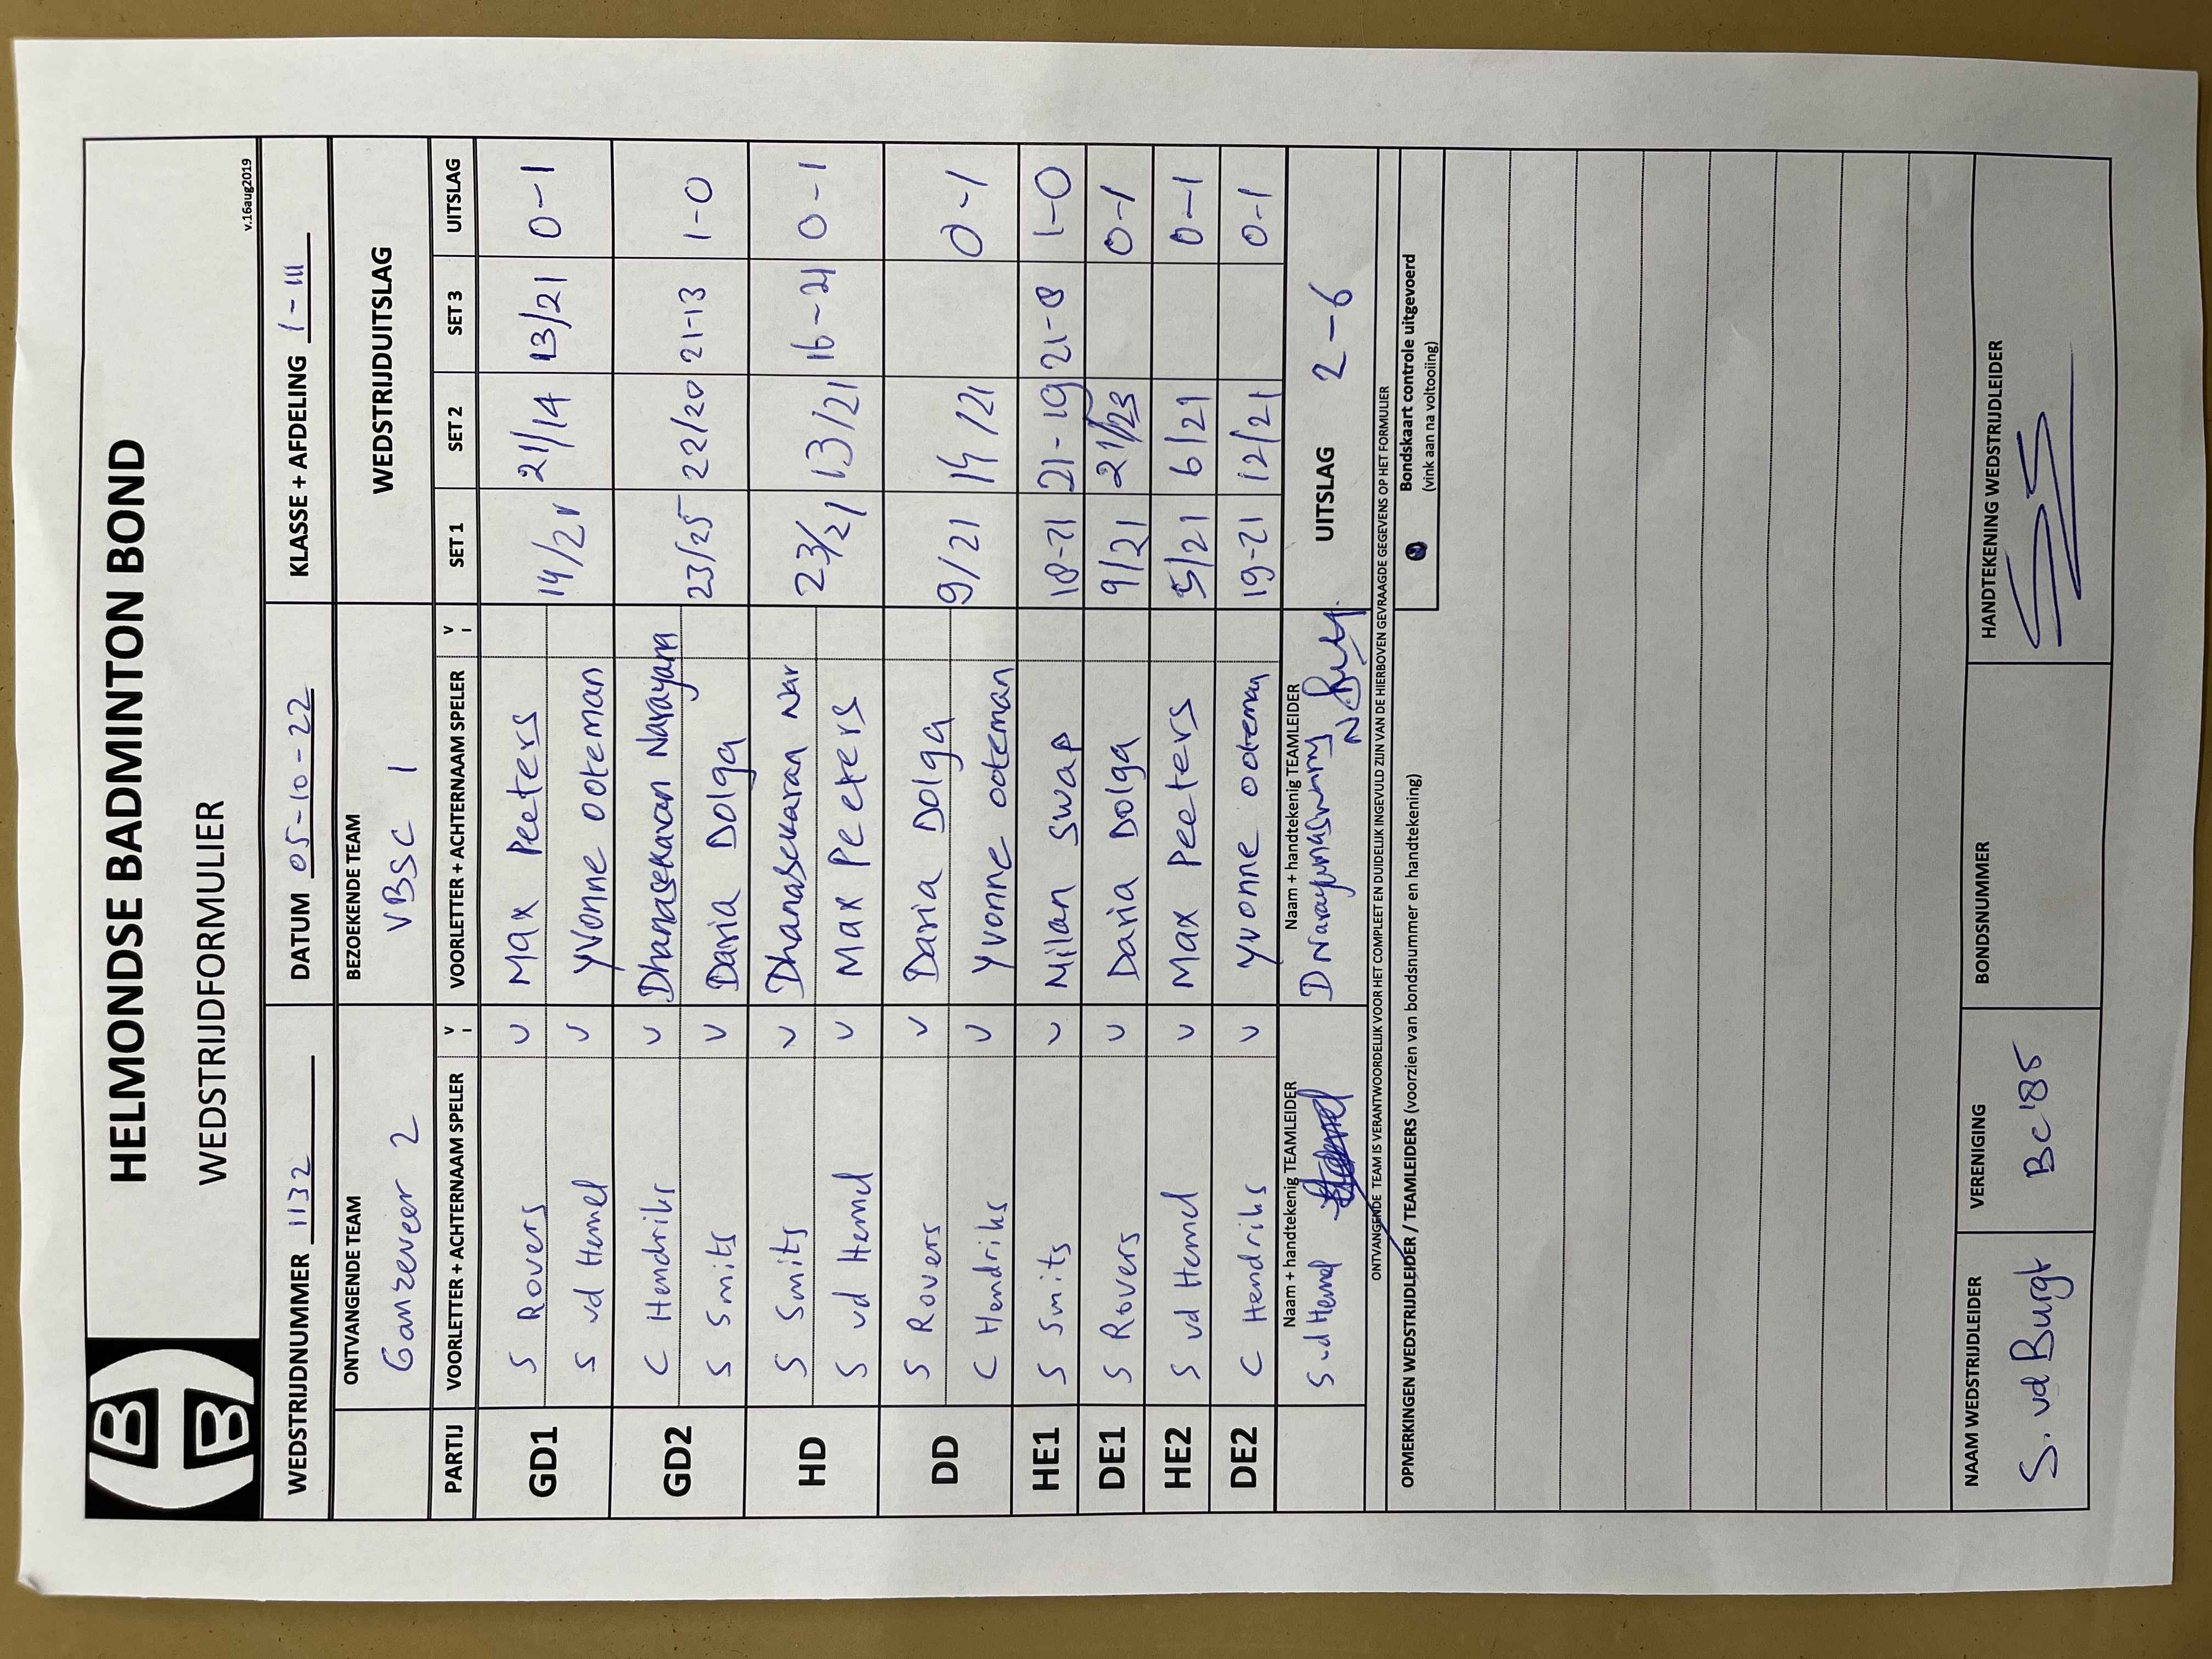 HELMONDSE BADMINTON BOND
WEDSTRIJDFORMULIER
v.16aug2019
WEDSTRIJDNUMMER 1132 DATUM 05-10-22 KLASSE + AFDELING 1-III
ONTVANGENDE TEAM BEZOEKENDE TEAM WEDSTRIJDUITSLAG
Ganzeveer 2 VBSC 1
PARTIJ VOORLETTER + ACHTERNAAM SPELER V VOORLETTER + ACHTERNAAM SPELER V SET 1 SET 2 SET 3 UITSLAG
GD1 S Rovers V Max Peeters 14/21 21/14 13/21 0-1
S vd Hemel V Yvonne Ooteman
GD2 C Hendriks V Dhanasekaran Narayana 23/25 22/20 21-13 1-0
S Smits V Daria Dolga
HD S Smits V Dhanasekaran Nar 23/21 13/21 16-21 0-1
S vd Hemel V Max Peeters
DD S Rovers V Daria Dolga 9/21 14/21 0-1
C Hendriks V Yvonne Ooteman
HE1 S Smits V Milan Swap 18-21 21-19 21-8 1-0
DE1 S Rovers V Daria Dolga 9/21 21/23 0-1
HE2 S vd Hemel V Max Peeters 5/21 6/21 0-1
DE2 C Hendriks V Yvonne Ooteman 19-21 12/21 0-1
Naam + handtekenig TEAMLEIDER Naam + handtekenig TEAMLEIDER
S vd Hemel D Narayanaswamy UITSLAG 2-6
ONTVANGENDE TEAM IS VERANTWOORDELIJK VOOR HET COMPLEET EN DUIDELIJK INGEVULD ZIJN VAN DE HIERBOVEN GEVRAAGDE GEGEVENS OP HET FORMULIER
OPMERKINGEN WEDSTRIJDLEIDER / TEAMLEIDERS (voorzien van bondsnummer en handtekening)
Bondskaart controle uitgevoerd
(vink aan na voltooiing)
NAAM WEDSTRIJDLEIDER VERENIGING BONDSNUMMER HANDTEKENING WEDSTRIJDLEIDER
S. vd Burgt BC'85